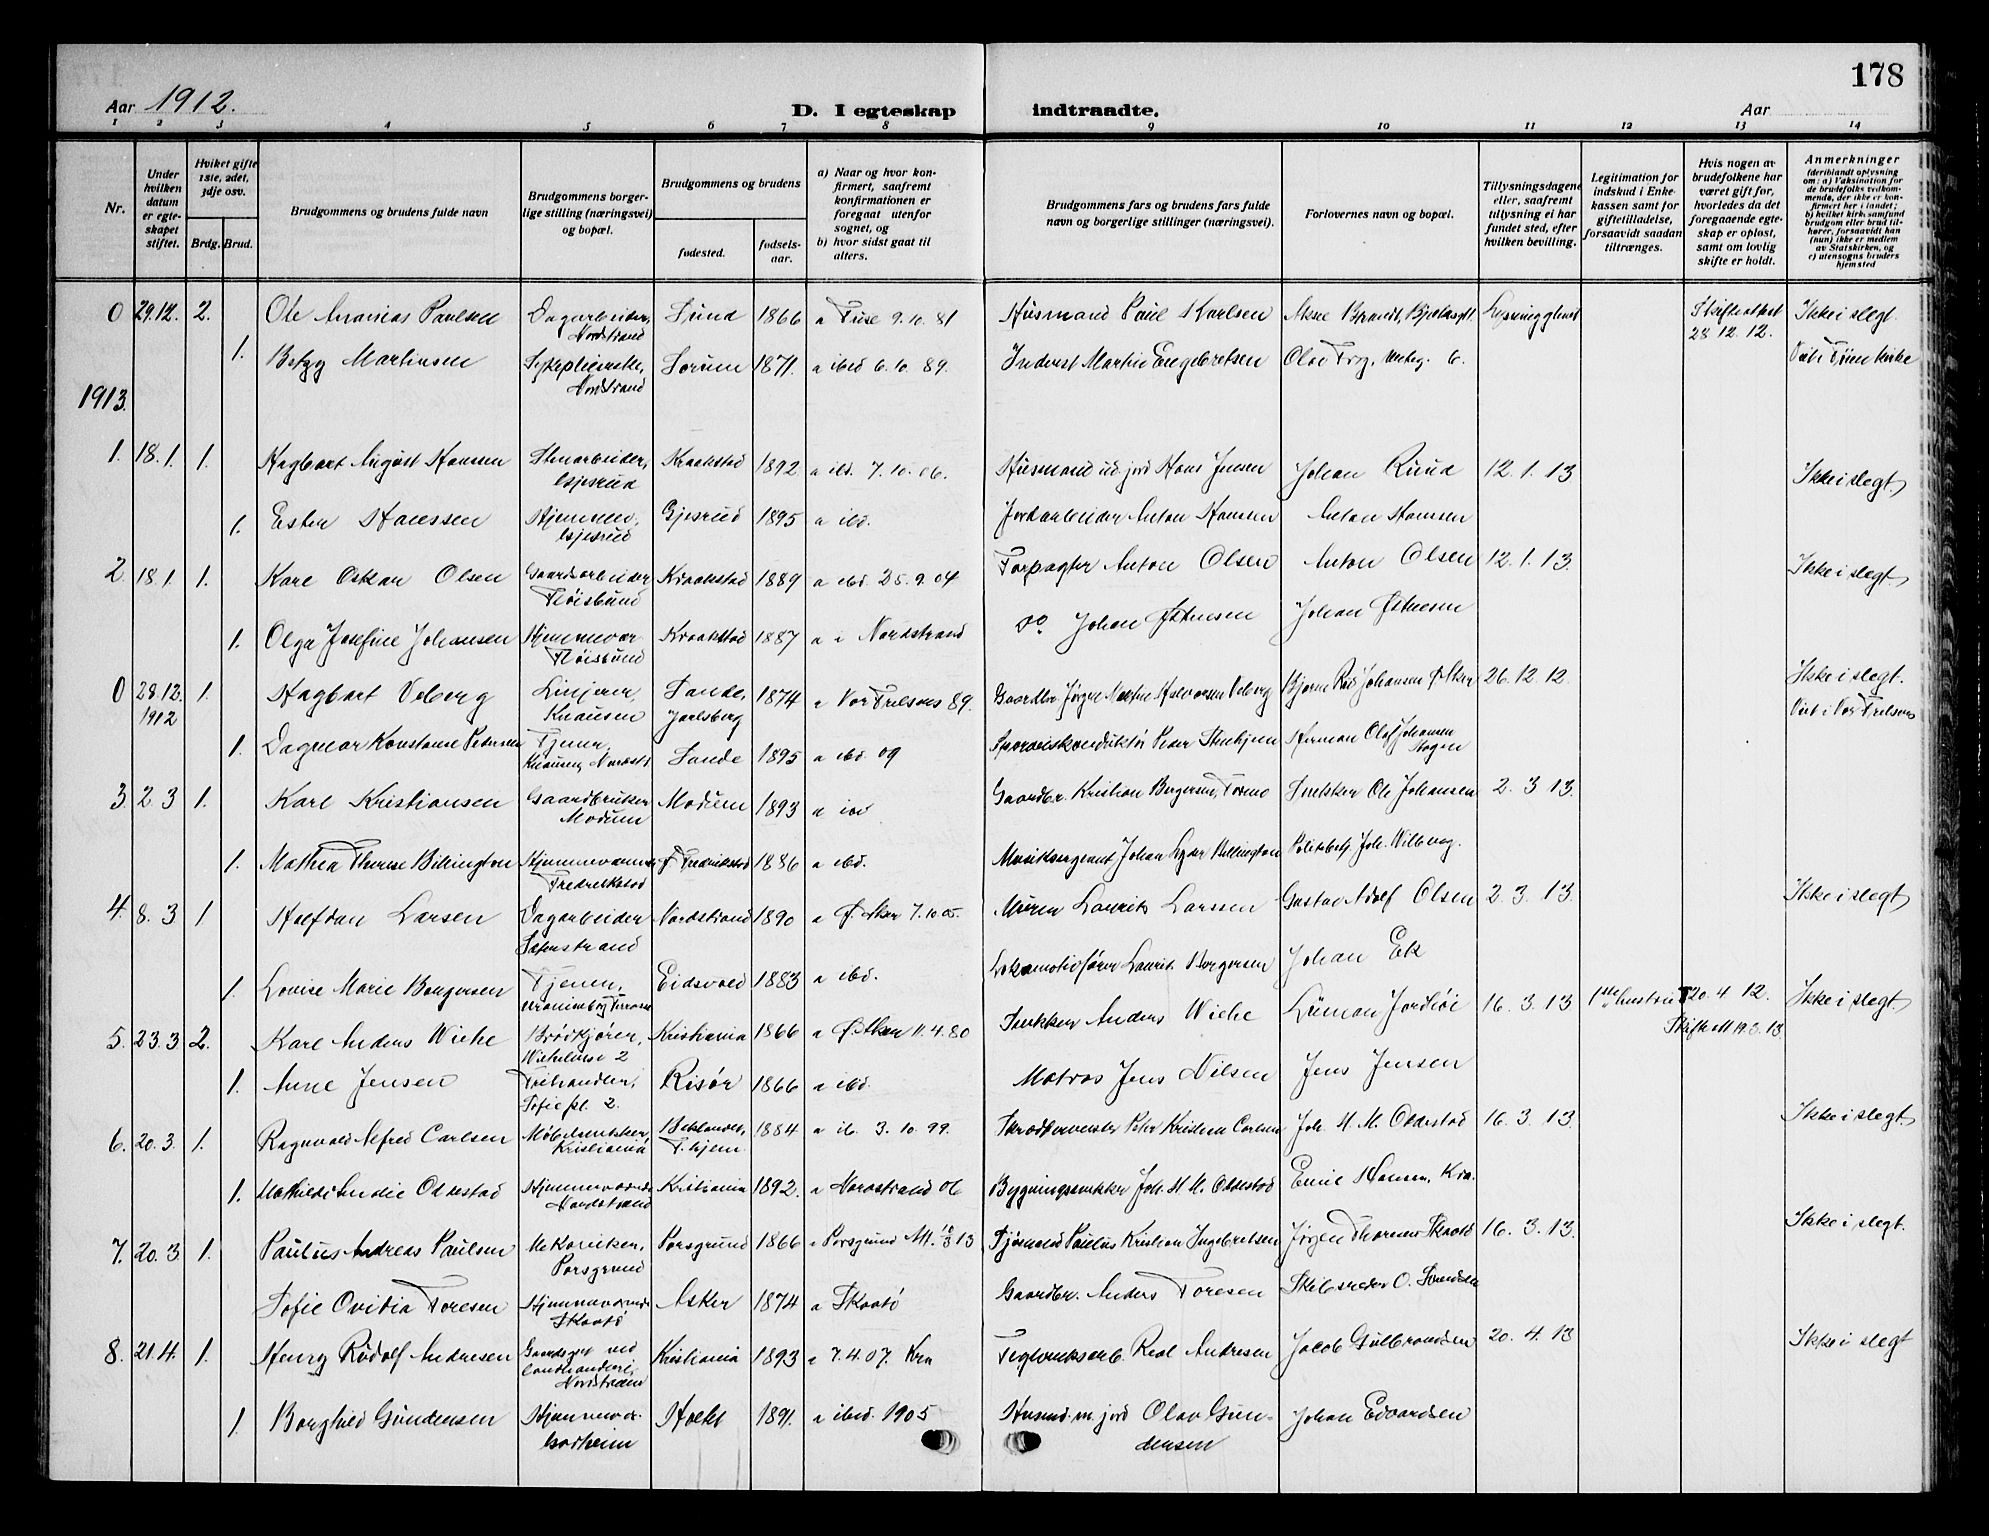 178
Aar 1912. D. I egteskap indtraadte. Aar
1 2 3 4 5 6 7 8 9 10 11 12 13 14
Nr.
Under hvilken datum er egteskapet stiftet.
Hvilket gifte 1ste, 2det, 3dje osv.
Brdg. Brud.
Brudgommens og brudens fulde navn
Brudgommens borgerlige stilling (næringsvei) og bopæl.
Brudgommens og brudens
fødested. fødsels-aar.
a) Naar og hvor konfirmert, saafremt konfirmationen er foregaat utenfor sognet, og
b) hvor sidst gaat til alters.
Brudgommens fars og brudens fars fulde navn og borgerlige stillinger (næringsvei).
Forlovernes navn og bopæl.
Tillysningsdagene eller, saafremt tillysning ei har fundet sted, efter hvilken bevilling.
Legitimation for indskud i Enkekassen samt for giftetilladelse, forsaavidt saadan tiltrænges.
Hvis nogen av brudefolkene har været gift før, hvorledes da det foregaaende egteskap er opløst, samt om lovlig skifte er holdt.
Anmerkninger (deriblandt oplysning om: a) Vaksination for de brudefolks vedkommende, der ikke er konfirmert her i landet; b) hvilket kirk. samfund brudgom eller brud tilhører, forsaavidt han (hun) ikke er medlem av Statskirken, og c) utensogns bruders hjemsted
0 29.12. 2. Ole Ananias Paulsen Dagarbeider, Nordstrand 1866 a Fuse 9.10.81 Husmand Paul Karlsen Skifteattest 28 12. 12. Ikke i slegt.
1. Martinsen Sykepleierske, Nordstrand Sørum 1871. a ibid 6.10.89. Martin Engebretsen Olav
1913.
1. 18.1. 1. Hagbart August Hansen Stenarbeider, Gjesrud Kraakstad 1892 a ibd. 7.10.06. Husmand ud jord Hans Jensen Johan Ruud 12.1.13 Ikke i slegt.
1. Ester Hanssen Hjemmev. Gjesrud Gjesrud 1895 a ibd. Jordarbeider Anton Hansen Anton Hansen
2 18.1. 1. Karl Oskar Olsen Gaardsarbeider Fløisbund Kraakstad 1889 a ibd. 25.9.04 Forpagter Anton Olsen Anton Olsen 12.1.13 Ikke i slegt,
1. Olga Josefine Johansen Hjemmevær. Fløisbund Kraakstad 1887 a i Nordstrand do Johan Østnesen Johan Østnesen
0 28.12. 1912 1. Hagbart Veberg Knausen Sande, Jarlsberg 1874 a Vor Frelsers 89. Gaardbr. Jørgen Halvorsen Veberg Bjarne Johansen Ø. Aker 26.12.12. Ikke i slegt. Viet i Vor Frelsers
1. Dagmar Konstanse Petersen Tjener, Knausen, Nordst. Sande 1895 a ibd. 09 Sporveiskonduktør Peder Herman Olaf Johansen
3. 2 3 1. Karl Kristiansen Gaardbruker Modum Modum 1893 a ibd Gaardbr. Kristian Bergersen, Snekker Ole Johansen 2. 3 13.
1. Mathea Therese Billington Hjemmeværende Fredrikstad Fredrikstad 1886 a ibd. Musiksergeant Johan Billington Politibetj. Joh. Wilberg.
4. 8. 3 1 Halfdan Larsen Dagarbeider Nordstrand 1890 a Ø. Aker 7.10.05. Murer Laurits Larssen Gustav Adolf Olsen 2.3.13. Ikke i slegt,
1. Lovise Marie Borgersen Tjener, Eidsvold 1883 a ibd. Lokomotivfører Laurits Borgersen Johan Ek
5. 23.3 2. Karl Anders Wiehe Brødkjører, Kristiania 1866 a Ø. Aker 11.4.80 Snekker Anders Wiehe 16.3.13 1ste hustru † 20.4 12. Skifteatt 19.3.13. Ikke i slegt,
1. Anne Jensen Sofie pl. 2. Risør 1866 a ibd. Matros Jens Nilsen Jens Jensen
6. 20.3. 1. Ragnvald Alfred Carlsen Møbelsnekker, Kristiania Baklandet, T.hjem 1884 a ib. 3.10.99. Skræddermester Peter Kristian Carlsen Joh. H. M. Oldestad 16.3.13. Ikke i slegt,
1. Mathilde Oldestad Hjemmeværende Nordstrand Kristiania 1892. a Nordstrand 06 Bygningssnekker Joh. H. M. Oldestad Emil Hansen, Kra.
7. 20.3 1. Paulus Andreas Paulsen Mekaniker, Porsgrund Porsgrund 1866 a Porsgrund Att. Paulus Kristian Ingebretsen Jørgen 16.3.13. Ikke i slegt.
Sofie Ovidia Toresen Hjemmeværende Skaatø Asker 1874 a Skaatø Gaardbr. Anders Toresen Skibsreder O.
8. 21.4. 1. Henry Rudolf Andresen Gaardsgut ved landhandleri, Nordstrand Kristiania 1893 a 7.4.07. Kra Teglverksarb. Andresen Jacob Gulbrandsen 20.4.13 Ikke i slegt
1. Borghild Gundensen Hjemmevær. Solheim Holt 1891. a ibid. 1905 Husmd. m. jord Olav Gundensen Johan Edvardsen